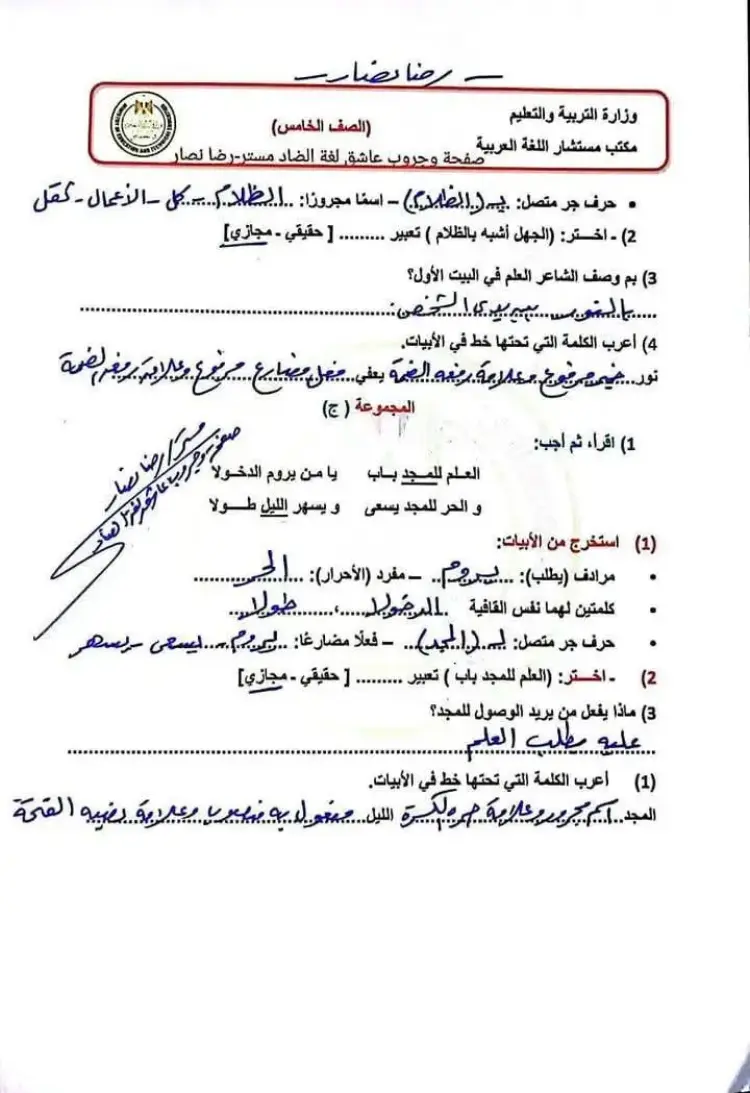 رضا نصار
وزارة التربية والتعليم
(الصف الخامس)
مكتب مستشار اللغة العربية
صفحة وجروب عاشق لغة الضاد مستر-رضا نصار
• حرف جر متصل: بـ (الظلام) – اسمًا مجرورًا: الظلام – كل – الأعمال – ثقل
2) - اختر: (الجهل أشبه بالظلام ) تعبير ......... [ حقيقي - مجازي]
3) بم وصف الشاعر العلم في البيت الأول؟
بالنور يهدي الشخص.
4) أعرب الكلمة التي تحتها خط في الأبيات.
نور.. خبر مرفوع وعلامة رفعه الضمة يعفي.. فعل مضارع مرفوع وعلامة رفعه الضمة
المجموعة ( ج)
مستر/ رضا نصار
صفحة وجروب عاشق لغة الضاد
1) اقرأ، ثم أجب:
العـلم للمجد بـاب يا مـن يروم الدخـولا
و الحر للمجد يسعى و يسهر الليل طـــولا
(1) استخرج من الأبيات:
• مرادف (يطلب): يروم – مفرد (الأحرار): الحر
• كلمتين لهما نفس القافية الدخولا ، طولا
• حرف جر متصل: لـ (المجد) – فعلًا مضارعًا: يروم – يسعى – يسهر
2) - اختـر: (العلم للمجد باب ) تعبير ......... [ حقيقي - مجازي]
3) ماذا يفعل من يريد الوصول للمجد؟
عليه بطلب العلم
(1) أعرب الكلمة التي تحتها خط في الأبيات.
المجد.. اسم مجرور وعلامة جره الكسرة الليل.. مفعول به منصوب وعلامة نصبه الفتحة